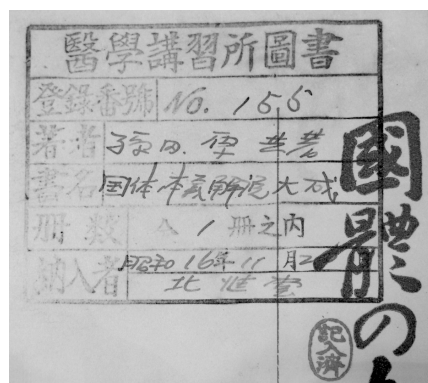 醫學講習所圖書
登錄番號 No. 155
著者 孫田 共著
書名 国体本義解説大成
冊數 全1冊之内
納入者 昭和16年11月2
北進堂
國體の
記入濟